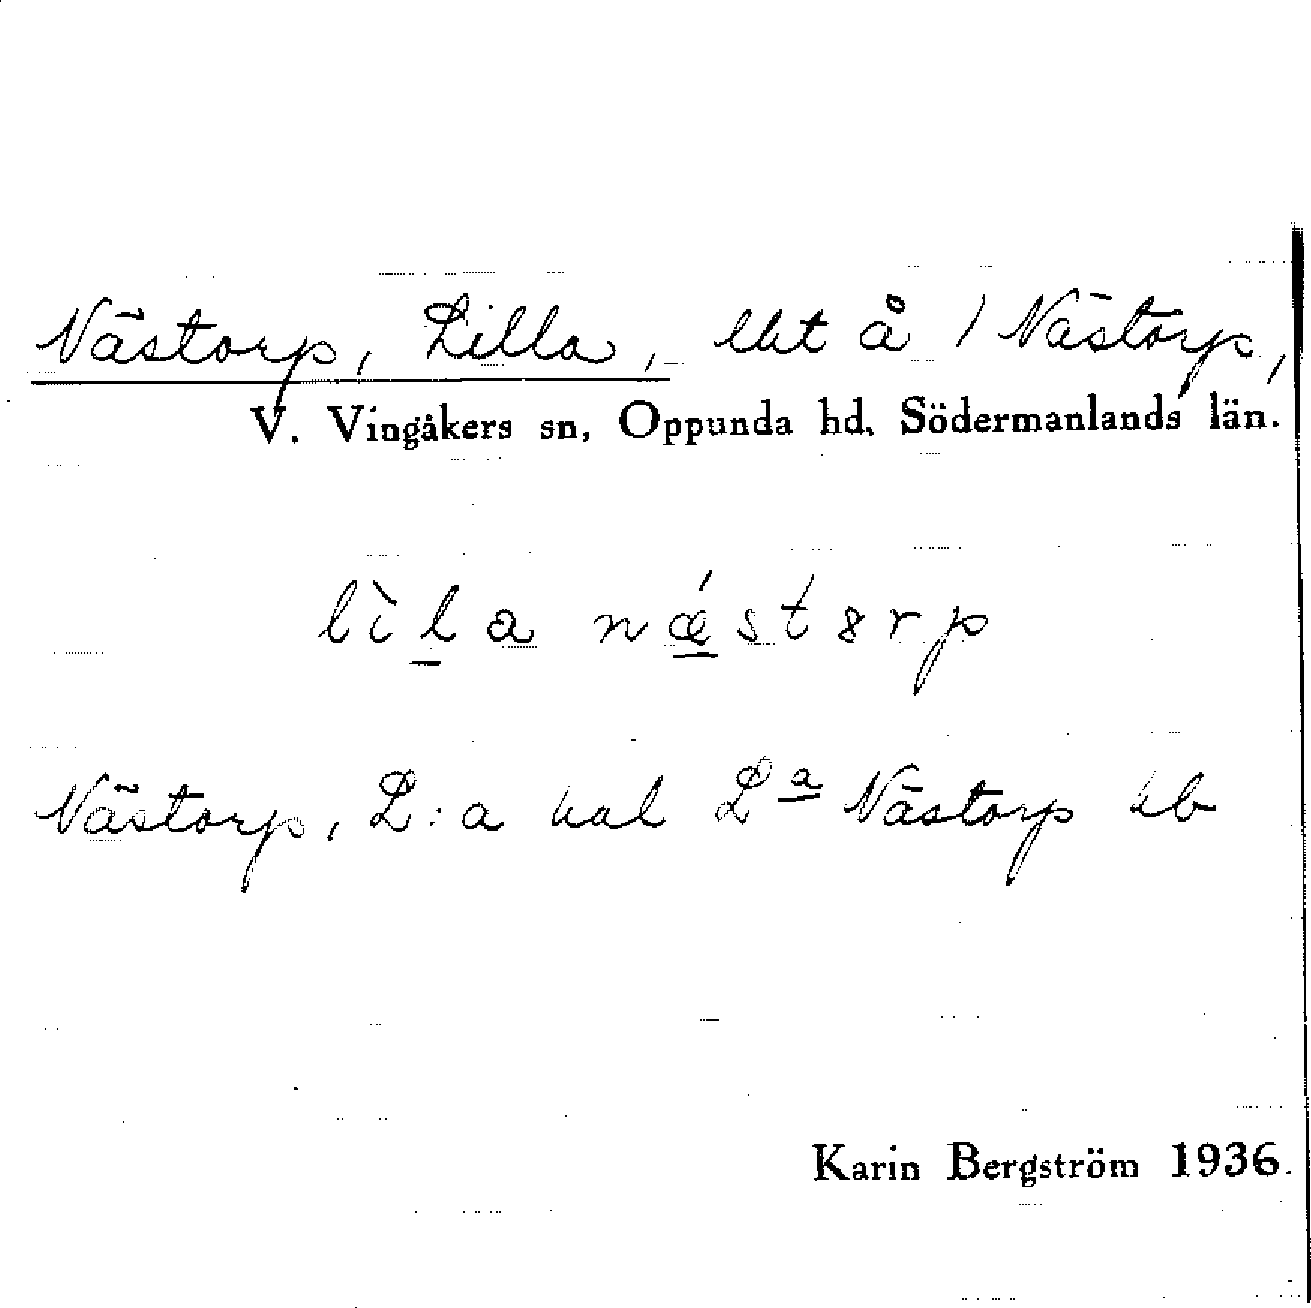 Nästorp, Lilla, lht å 1 Nästorp,
V. Vingåkers sn, Oppunda hd, Södermanlands län.
lìla nǽst8rp
Nästorp, L:a hal La Nästorp hb
Karin Bergström 1936.